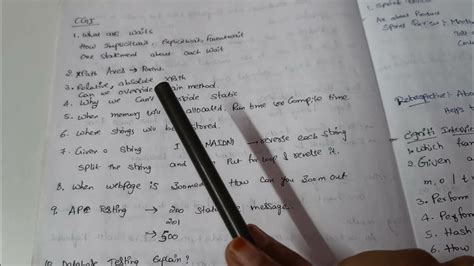 CGI
1. What are waits
How Implicitwait, Explicitwait, Fluentwait
One statement about each wait
2. XPath Axes →
3. Relative, absolute XPath
Can we override main method
4. Why we can't override static
5. When memory will be allocated. Run time or Compile time
6. Where strings will be stored.
7. Given a string I → reverse each string
Split the string and put for loop & reverse it.
8. When webpage is zoomed How can you zoom out
9. API Testing → 200 status message.
201
→ 500
10. Database Testing Explain?
1. Sprint
As about Product
Sprint Review → 
Retrospective:
Cogniti
1. Which
2. Given
m, o /
3. Perform
4. Perform
5. Hash
6. How